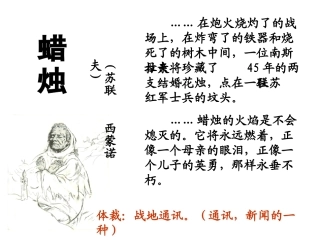 蜡烛
（苏联）
西蒙诺夫
……在炮火烧灼了的战
场上，在炸弯了的铁器和烧
死了的树木中间，一位南斯
将珍藏了 45 年的两
支结婚花烛，点在一 苏
红军士兵的坟头。
……蜡烛的火焰是不会
熄灭的。它将永远燃着，正
像一个母亲的眼泪，正像一
个儿子的英勇，那样永垂不
朽。
体裁：战地通讯。（通讯，新闻的一
种）